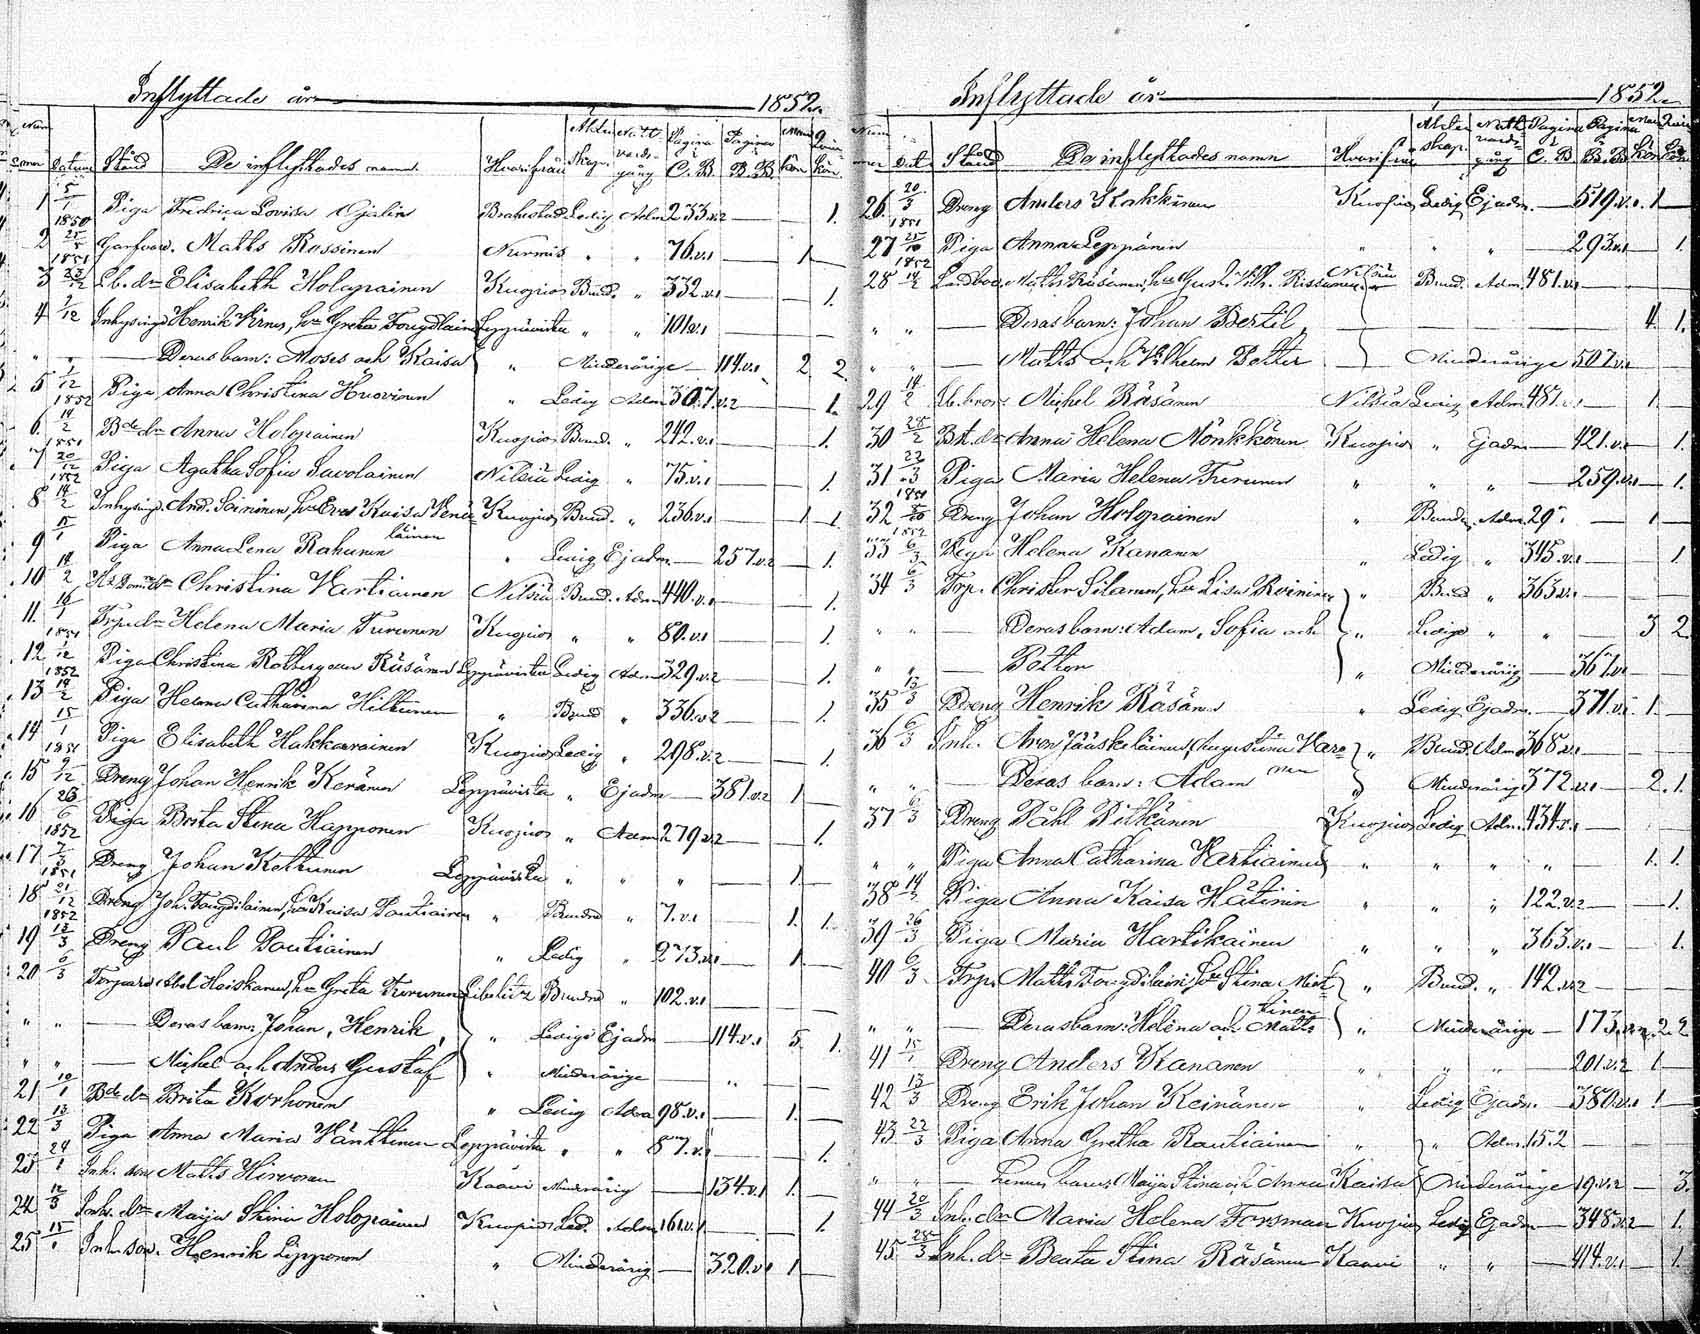 Inflyttade år 1852.
Stånd De inflyttades namn. Hvarifrån C.B. B.B.
1 5/1 Piga Fredrica Lovisa Ojalin Brahestad Ledig Adm 233.v.2 1.
1850
2 25/5 Matts Rossinen Nurmis " " 76.v.1 1
1851
3 23/12 Lb. dr Elisabeth Holopainen Kuopio Bund. " 332.v.1 1.
4 7/12 Inhysing Henrik hu Greta Leppävirta " " 101.v.1
" " Deras barn: Moses och Kaisa " Minderårige 114.v.1 2 2.
5 1/12 Piga Anna Christina Huovinen " Ledig Adm 307.v.2 1.
1852
6 14/2 Bde dr Anna Holopainen Kuopio Bund. " 242.v.1 1.
1851
7 20/12 Piga Agatha Sofia Savolainen Nilsiä Ledig " 75.v.1 1.
1852
8 14/2 Inhysing And. Soininen, hu Eva Kaisa Venä- Kuopio Bund. " 236.v.1 1 1.
läinen
9 15/1 Piga Anna Lena Rahunen " Ledig Ej adm. 257.v.2 1.
10 18/2 Christina Vartiainen Nilsiä Bund. Adm 440.v.1 1.
11. 16/1 Torp. dr Helena Maria Turunen Kuopio " " 80.v.1 1.
1851
12 7/12 Piga Christina Räsänen Leppävirta Ledig Adm 329.v.2 1.
1852
13 19/2 Piga Helena Catharina Hiltunen " Bund " 336.v.2 1.
14 15/1 Piga Elisabeth Hakkarainen Kuopio Ledig " 298.v.2 1.
1851
15 9/12 Dreng Johan Henrik Keränen Leppävirta " Ej adm 381.v.2 1
16 Piga Brita Stina Happonen Kuopio " Adm 279.v.2 1.
1852
17 7/3 Dreng Johan Kettunen Leppävirta " " " 1
1851
18 21/12 Dreng Joh. Fougdilainen, hu Kaisa Pautiainen " Bundne " 7.v.1 1. 1.
1852
19 13/3 Dreng Paul Pautiainen " Ledig " 273.v.1 1
20 6/3 Torpare Abel Hoiskanen, hu Greta Turunen Libelitz Bundne " 102.v.1
" " Deras barn: Johan, Henrik, " Ledige Ej adm 114.v.1 5 1.
" " Michel och Anders Gustaf " Minderårige "
21 10/1 Bde dr Brita Korhonen " Ledig Adm 98.v.1 1.
22 13/3 Piga Anna Maria Vänttinen Leppävirta " " 87.v.1 1.
23 24/1 Inh. son Matts Hirvonen Kaavi Minderårig 134.v.1 1.
24 12/3 Inh. dr Maija Stina Holopainen Kuopio Led. Adm 161.v.1 1.
25 15/1 Inh. son. Henrik Lipponen " Minderårig 320.v.1 1
Inflyttade år 1852.
Dat. Stånd De inflyttades namn Hvarifrån C.B. B.B.
26 20/3 Dreng Anders Kakkinen Kuopio Ledig Ej adm. 519.v.1 1
1851
27 25/10 Piga Anna Leppänen " " " 293.v.1 1.
1852
28 14/2 Landboe Matts Räsänen, hu Gust. Vilh. Rissanen Nilsiä Bund. Adm 481.v.1
" " Deras barn: Johan Bertil, 4 1.
" " Matts och Vilhelm Petter Minderårige 507.v.1
29 14/2 Lb. bror Michel Räsänen Nilsiä Ledig Adm 481.v.1 1
30 28/2 Bde dr Anna Helena Mönkkönen Kuopio " Ej adm 421.v.1 1.
31 22/3 Piga Maria Helena Turunen " " " 259.v.1 1.
32 Dreng Johan Holopainen " Bunden Adm. 29 1
1852
33 6/3 Piga Helena Kananen " Ledig " 345.v.1 1
34 6/3 Torp. Christer Silanen, hu Lisa Roininen " Bund " 363.v.1
" " Deras barn: Adam, Sofia och " Ledige " " 3 2.
" " Petter " Minderårig 367.v.1
35 13/3 Dreng Henrik Räsänen " Ledig Ej adm. 371.v.1 1
36 6/3 Inh. Aron Jääskeläinen, Augustina Varo- " Bund. Adm 368.v.1
nen
" " Deras barn: Adam " Minderårig 372.v.1 2. 1.
37 6/3 Dreng Påhl Pitkänen Kuopio Ledig Adm. 434.v.1
" " Piga Anna Catharina Vartiainen " " " " 1. 1.
38 14/3 Piga Anna Kaisa Hätinin " " " 122.v.2 1.
39 26/3 Piga Maria Hartikainen " " " 363.v.1 1.
40 6/3 Torp. Matts Fougdilain, hu Stina Miet- " Bund. " 142.v.2
tinen
" " Deras barn: Helena och Matts " Minderårige 173.v.2 2. 2
41 15/1 Dreng Anders Kananen " " " 201.v.2 1
42 13/3 Dreng Erik Johan Keinänen " Ledig Ej adm. 380.v.1 1
43 22/3 Piga Anna Gretha Rautiainen " " Adm. 152
" " Hennes barn: Maija Stina och Anna Kaisa Minderårige 19.v.2 3.
44 20/3 Inh. dr Maria Helena Forsman Kuopio Ledig Ej adm 348.v.2 1.
45 28/3 Inh. dr Beata Stina Räsänen Kaavi " " 414.v.1 1.